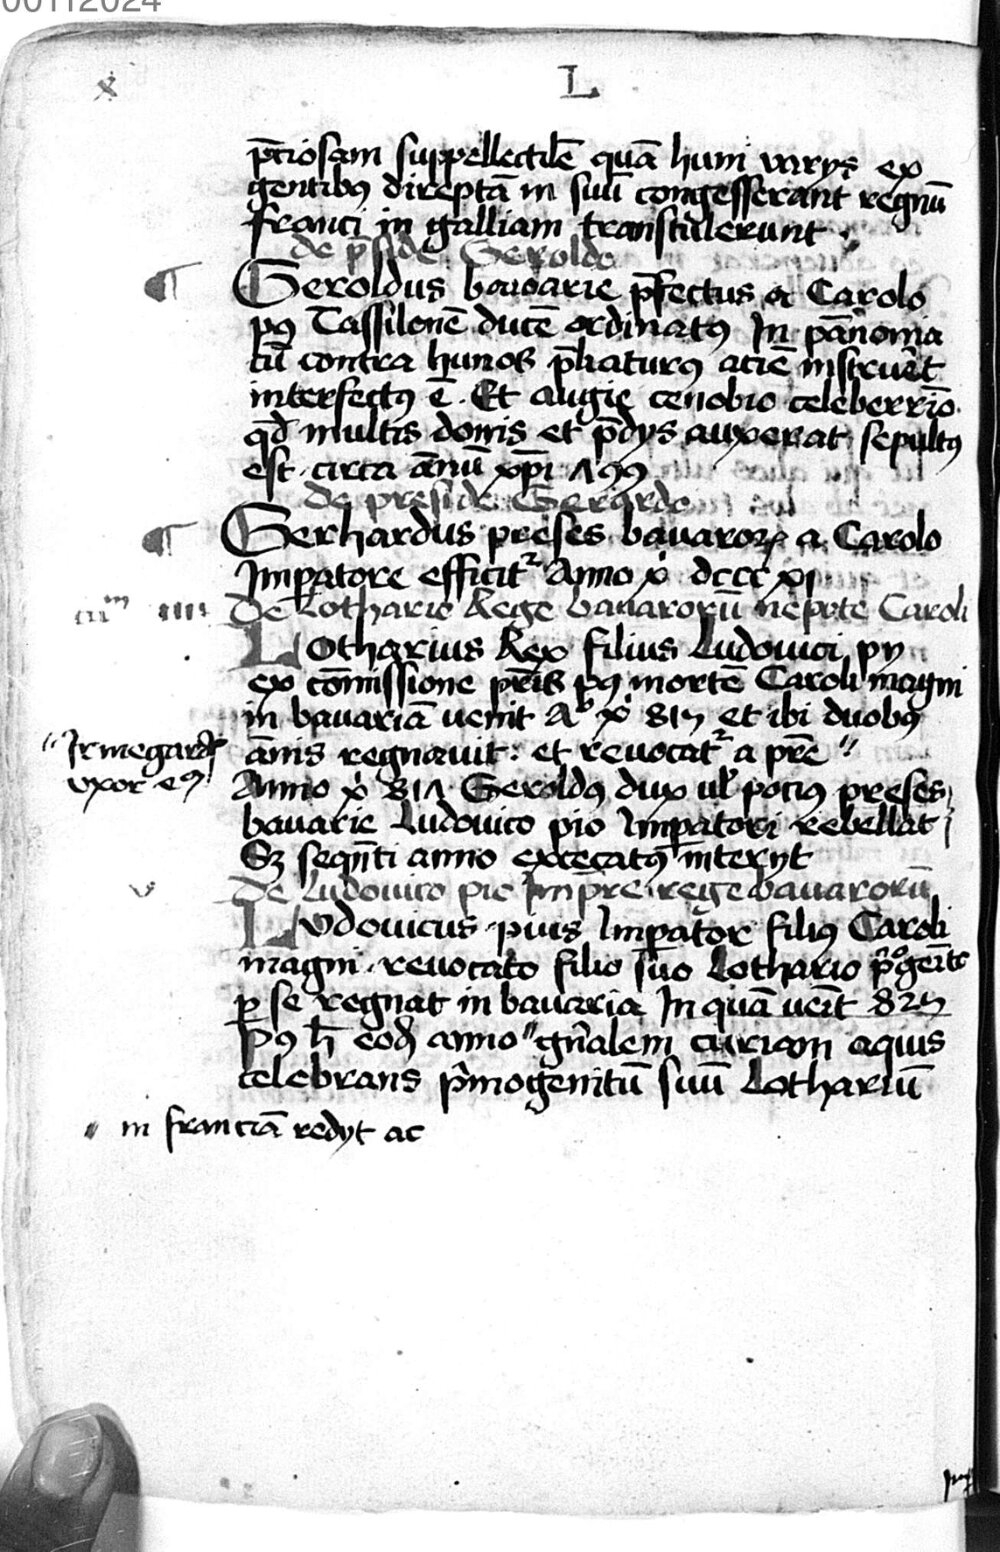 00112024
x L
p̄ciosam suppellectilē quā huni varijs ex
gentibꝰ direptā in suū congesserant regnū
franci in galliam transtulerunt
de p̄side Geroldo
¶ Geroldus bauoarie p̄fectus a Carolo
pꝰ Tassilonē ducē ordinatꝰ In pānonia
cū contra hunos p̄liaturꝰ aciē instruēt
interfectꝰ ē. Et augie cenobio celeberrīo
qd̄ multis donis et p̄dijs auxerat sepultꝰ
est circa ānū xp̄i 799
de preside Gerardo
¶ Gerhardus preses bauaroꝝ a Carolo
Imꝑatore efficitᷣ Anno x̄ dccc xi
iiii De Lothario Rege bauarorū nepote Caroli
LOtharius Rex filius Ludouici pij
ex cōmissione pr̄is pꝰ mortē Caroli magni
in bauariā uenit Aº x̄ 815 et ibi duobꝰ
ānis regnauit: et reuocatᷣ a pr̄e "
" Irmegardꝭ
vxor eꝰ
Anno x̄ 817 Geroldꝰ dux ul̄ pociꝰ preses
bauarie Ludouico pio Imꝑatori rebellat
Sꝫ seqn̄ti anno excecatꝰ interijt
v De Ludouico pio Imꝑre rege bauarorū
LVdouicus pius Imꝑator filiꝰ Caroli
magni reuocato filio suo Lothario p̄ºgeīto
ꝑ se regnat in bauaria In quā ueīt 825
Pꝰ h̄ eod̄ anno " gn̄alem curiam aquis
celebrans p̄mogenitū suū Lothariū
" in franciā redijt ac